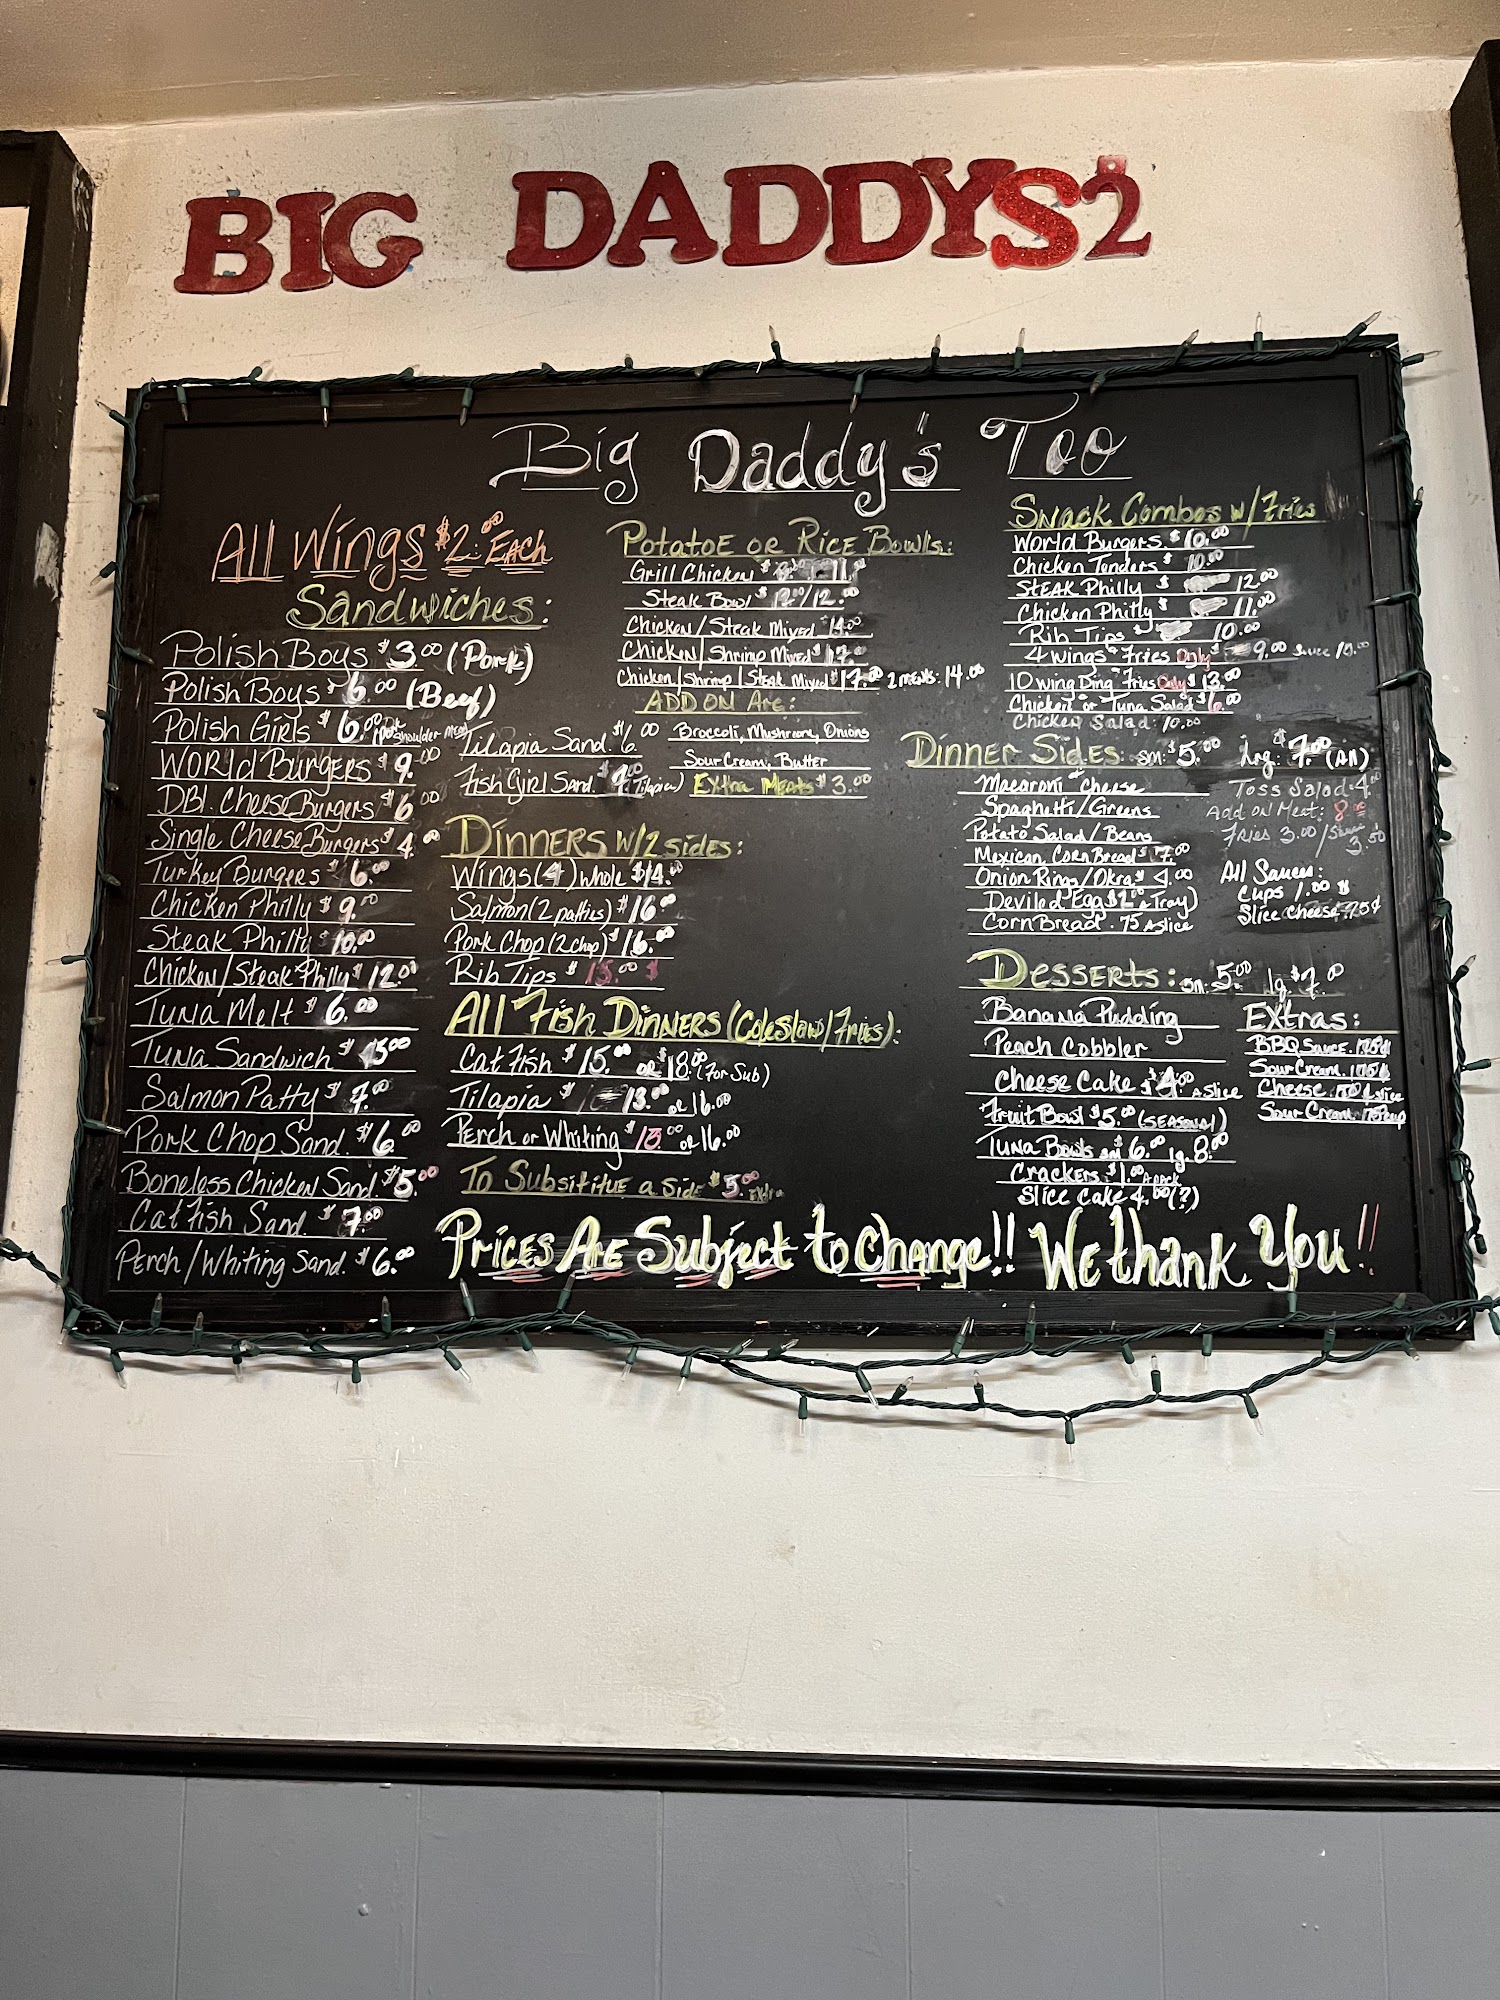 BIG DADDYS2
Big Daddy's Too
All Wings $2.00 Each
Sandwiches:
Polish Boys $3.00 (Pork)
Polish Boys $6.00 (Beef)
Polish Girls $6.00 Shoulder Meat
World Burgers $9.00
Dbl. Cheese Burgers $6.00
Single Cheese Burgers $4.00
Turkey Burgers $6.00
Chicken Philly $9.00
Steak Philly $10.00
Chicken/Steak Philly $12.00
Tuna Melt $6.00
Tuna Sandwich $5.00
Salmon Patty $7.00
Pork Chop Sand. $6.00
Boneless Chicken Sand. $5.00
Catfish Sand. $7.00
Perch/Whiting Sand. $6.00
Tilapia Sand. $6.00
Fish Girl Sand. $9.00 (Tilapia)
Potatoe or Rice Bowls:
Grill Chicken $ 11.
Steak Bowl $ /12.00
Chicken/Steak Mixed $14.00
Chicken/Shrimp Mixed $17.00
Chicken/Shrimp/Steak Mixed $17.00 2 Meats: 14.00
ADD ON Are:
Broccoli, Mushroom, Onions
Sour Cream, Butter
Extra Meats $3.00
Dinners w/2 sides:
Wings (4) whole $14.00
Salmon (2 patties) $16.00
Pork Chop (2 chop) $16.00
Rib Tips $15.00
All Fish Dinners (Coleslaw/Fries):
Catfish $15.00 OR $18.00 (For Sub)
Tilapia $ 13.00 or 16.00
Perch or Whiting $13.00 or 16.00
To Subsititue a side $5.00 Extra
Snack Combos w/Fries
World Burgers $10.00
Chicken Tenders $10.00
Steak Philly $ 12.00
Chicken Philly $ 11.00
Rib Tips $ 10.00
4 Wings + Fries Only $9.00 Sauce 10.00
10 Wing Ding + Fries Only $13.00
Chicken or Tuna Salad $6.00
Chicken Salad: 10.00
Dinner Sides: sm: $5.00 Lrg: $7.00 (All)
Macaroni + Cheese
Spaghetti/Greens
Potato Salad/Beans
Mexican Corn Bread $7.00
Onion Rings/Okra $4.00
Deviled Egg $2.00 a Tray)
Corn Bread .75 A slice
Toss Salad 4.00
Add on Meat: 8.00
Fries 3.00/Sauce 3.50
All Sauces:
Cups 1.00
Slice Cheese .75¢
Desserts: sm: 5.00 lg. $7.00
Banana Pudding
Peach Cobbler
Cheese Cake $4.00 A slice
Fruit Bowl $5.00 (SEASONAL)
Tuna Bowls sm 6.00 lg. 8.00
Crackers $1.00 A pack
Slice Cake 4.00 (?)
Extras:
BBQ Sauce
Sour Cream
Cheese A slice
Sour Cream cup
Prices Are Subject to Change!! We thank You!!